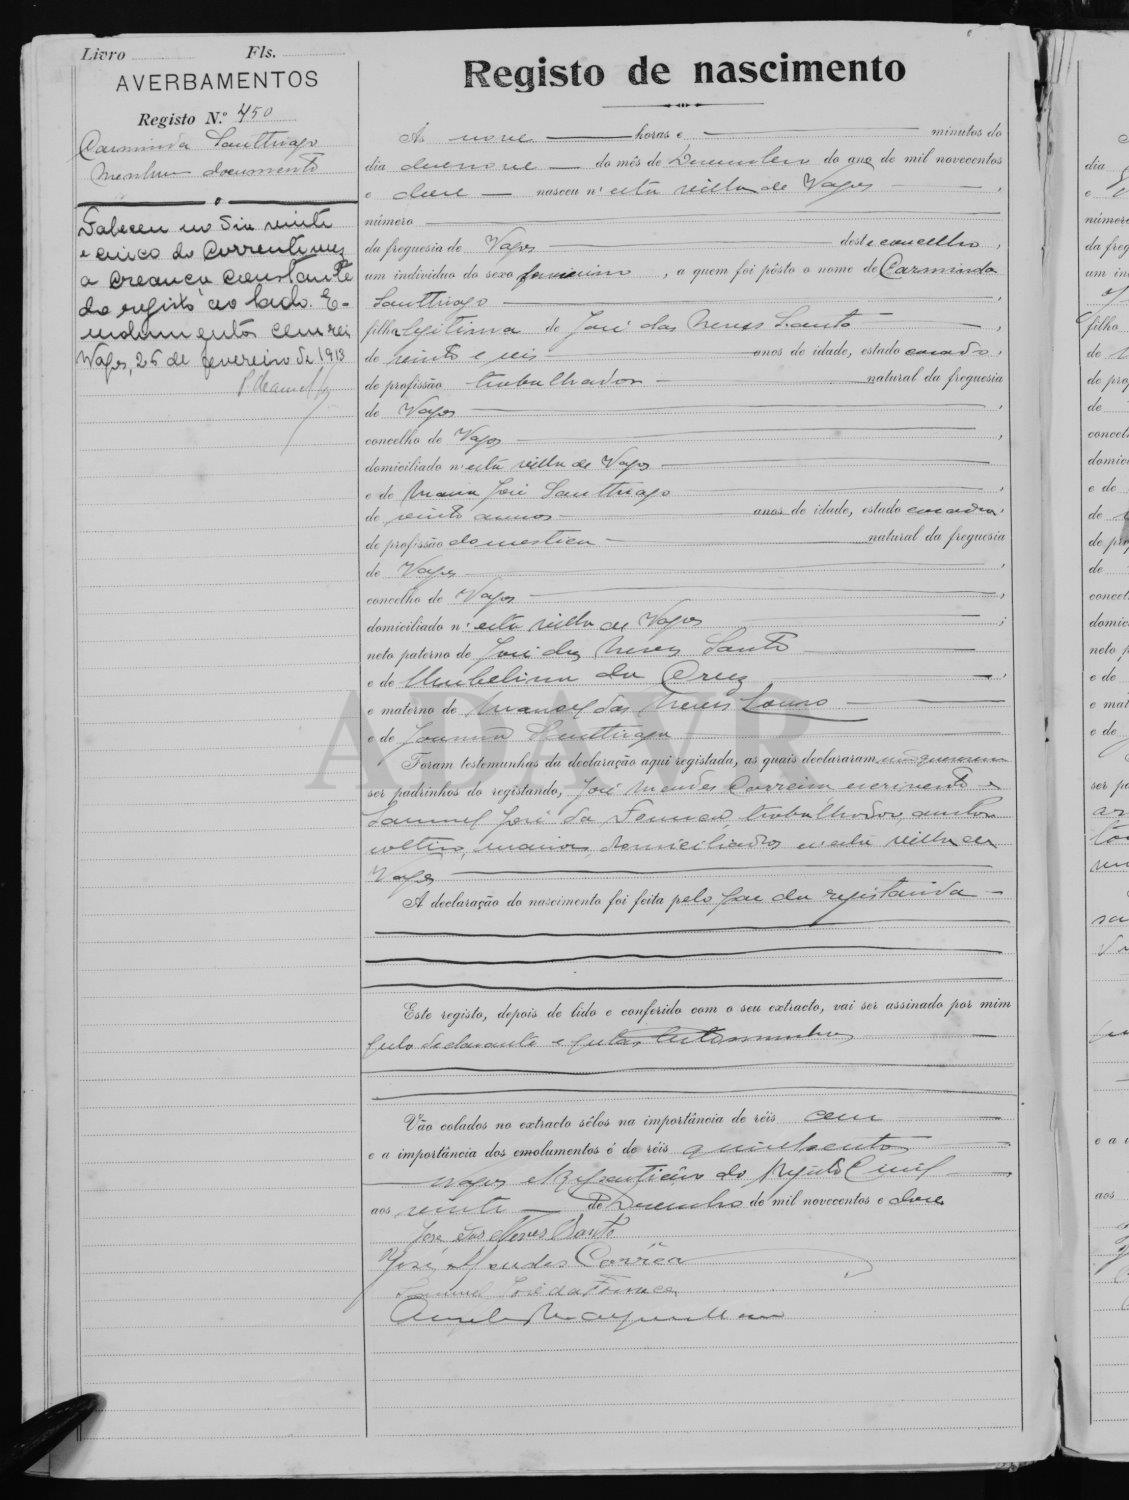 Livro Fls.
AVERBAMENTOS
Registo N.º 450
Carminda Santhiago
Nenhum documento
Faleceu no dia vinte
e cinco do corrente mez
a creança constante
do registo ao lado. E-
molumentos cem reis
Vagos, 26 de fevereiro de 1913
Registo de nascimento
Ás nove horas e minutos do
dia dezenove do mês de Dezembro do ano de mil novecentos
e doze nasceu n'esta villa de Vagos,
número
da freguesia de Vagos deste concelho,
um indivíduo do sexo femenino, a quem foi pôsto o nome de Carminda
Santhiago,
filha legitima de José das Neves Santo,
de vinte e seis anos de idade, estado casado,
de profissão trabalhador natural da freguesia
de Vagos,
concelho de Vagos,
domiciliado n'esta villa de Vagos
e de Maria José Santhiago,
de vinte annos anos de idade, estado casada,
de profissão domestica natural da freguesia
de Vagos,
concelho de Vagos,
domiciliado n'esta villa de Vagos;
neto paterno de José das Neves Santo
e de Umbelina da Cruz,
e materno de Manoel das Neves Louro
e de Joanna Santhiago
Foram testemunhas da declaração aqui registada, as quais declararam não quererem
ser padrinhos do registando, José Mendes Correia, escrivente e
Samuel José da Fonseca trabalhador, ambos
solteiros, maiores, domiciliados n'esta villa de
Vagos
A declaração do nascimento foi feita pelo pae da registanda
Este registo, depois de lido e conferido com o seu extracto, vai ser assinado por mim
pelo declarante e pelas testemunhas
Vão colados no extracto sêlos na importância de réis cem
e a importância dos emolumentos é de réis quinhentos
Vagos e Repartição do Registo Civil
aos vinte de Dezembro de mil novecentos e doze
José das Neves Santo
José Mendes Corrêa
Samuel José da Fonseca
ADAVR